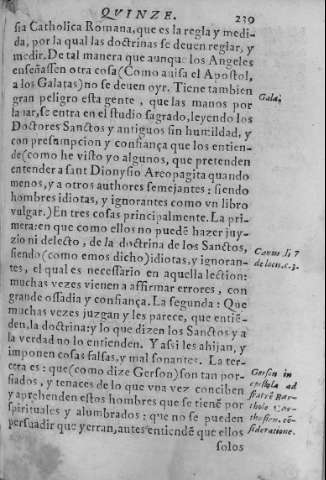 QVINZE. 239
sia Catholica Romana, que es la regla y medi-
da, por la qual las doctrinas se deuen reglar, y
medir. De tal manera que aunque los Angeles
enseñassen otra cosa (Como auisa el Apostol,
a los Galatas) no se deuen oyr. Tiene tambien
gran peligro esta gente, que las manos por
Gala;
lauar, se entra en el studio sagrado, leyendo los
Doctores Sanctos y antiguos sin humildad, y
con presumpcion y confiança que los entien-
de (como he visto yo algunos, que pretenden
entender a sant Dionysio Areopagita quando
menos, y a otros authores semejantes: siendo
hombres idiotas, y ignorantes como vn libro
vulgar.) En tres cosas principalmente. La pri-
mera: en que como ellos no puedē hazer juy-
zio ni delecto, de la doctrina de los Sanctos,
siendo (como emos dicho) idiotas, y ignoran-
Canus li 7
de locis. c. 3.
tes, el qual es necessario en aquella lection:
muchas vezes vienen a affirmar errores, con
grande ossadia y confiança. La segunda: Que
muchas vezes juzgan y les parece, que entiē-
den, la doctrina: y lo que dizen los Sanctos y a
la verdad no lo entienden. Y assi les ahijan, y
imponen cosas falsas, y mal sonantes. La ter-
cera es: que (como dize Gerson) son tan por-
Gerson in
epistola ad
fratrē Bar-
thole Car-
thusien. cō-
sideratione.
siados, y tenaces de lo que vna vez conciben
y aprehenden estos hombres que se tienē por
spirituales y alumbrados: que no se pueden
persuadir que yerran, antes entiendē que ellos
solos